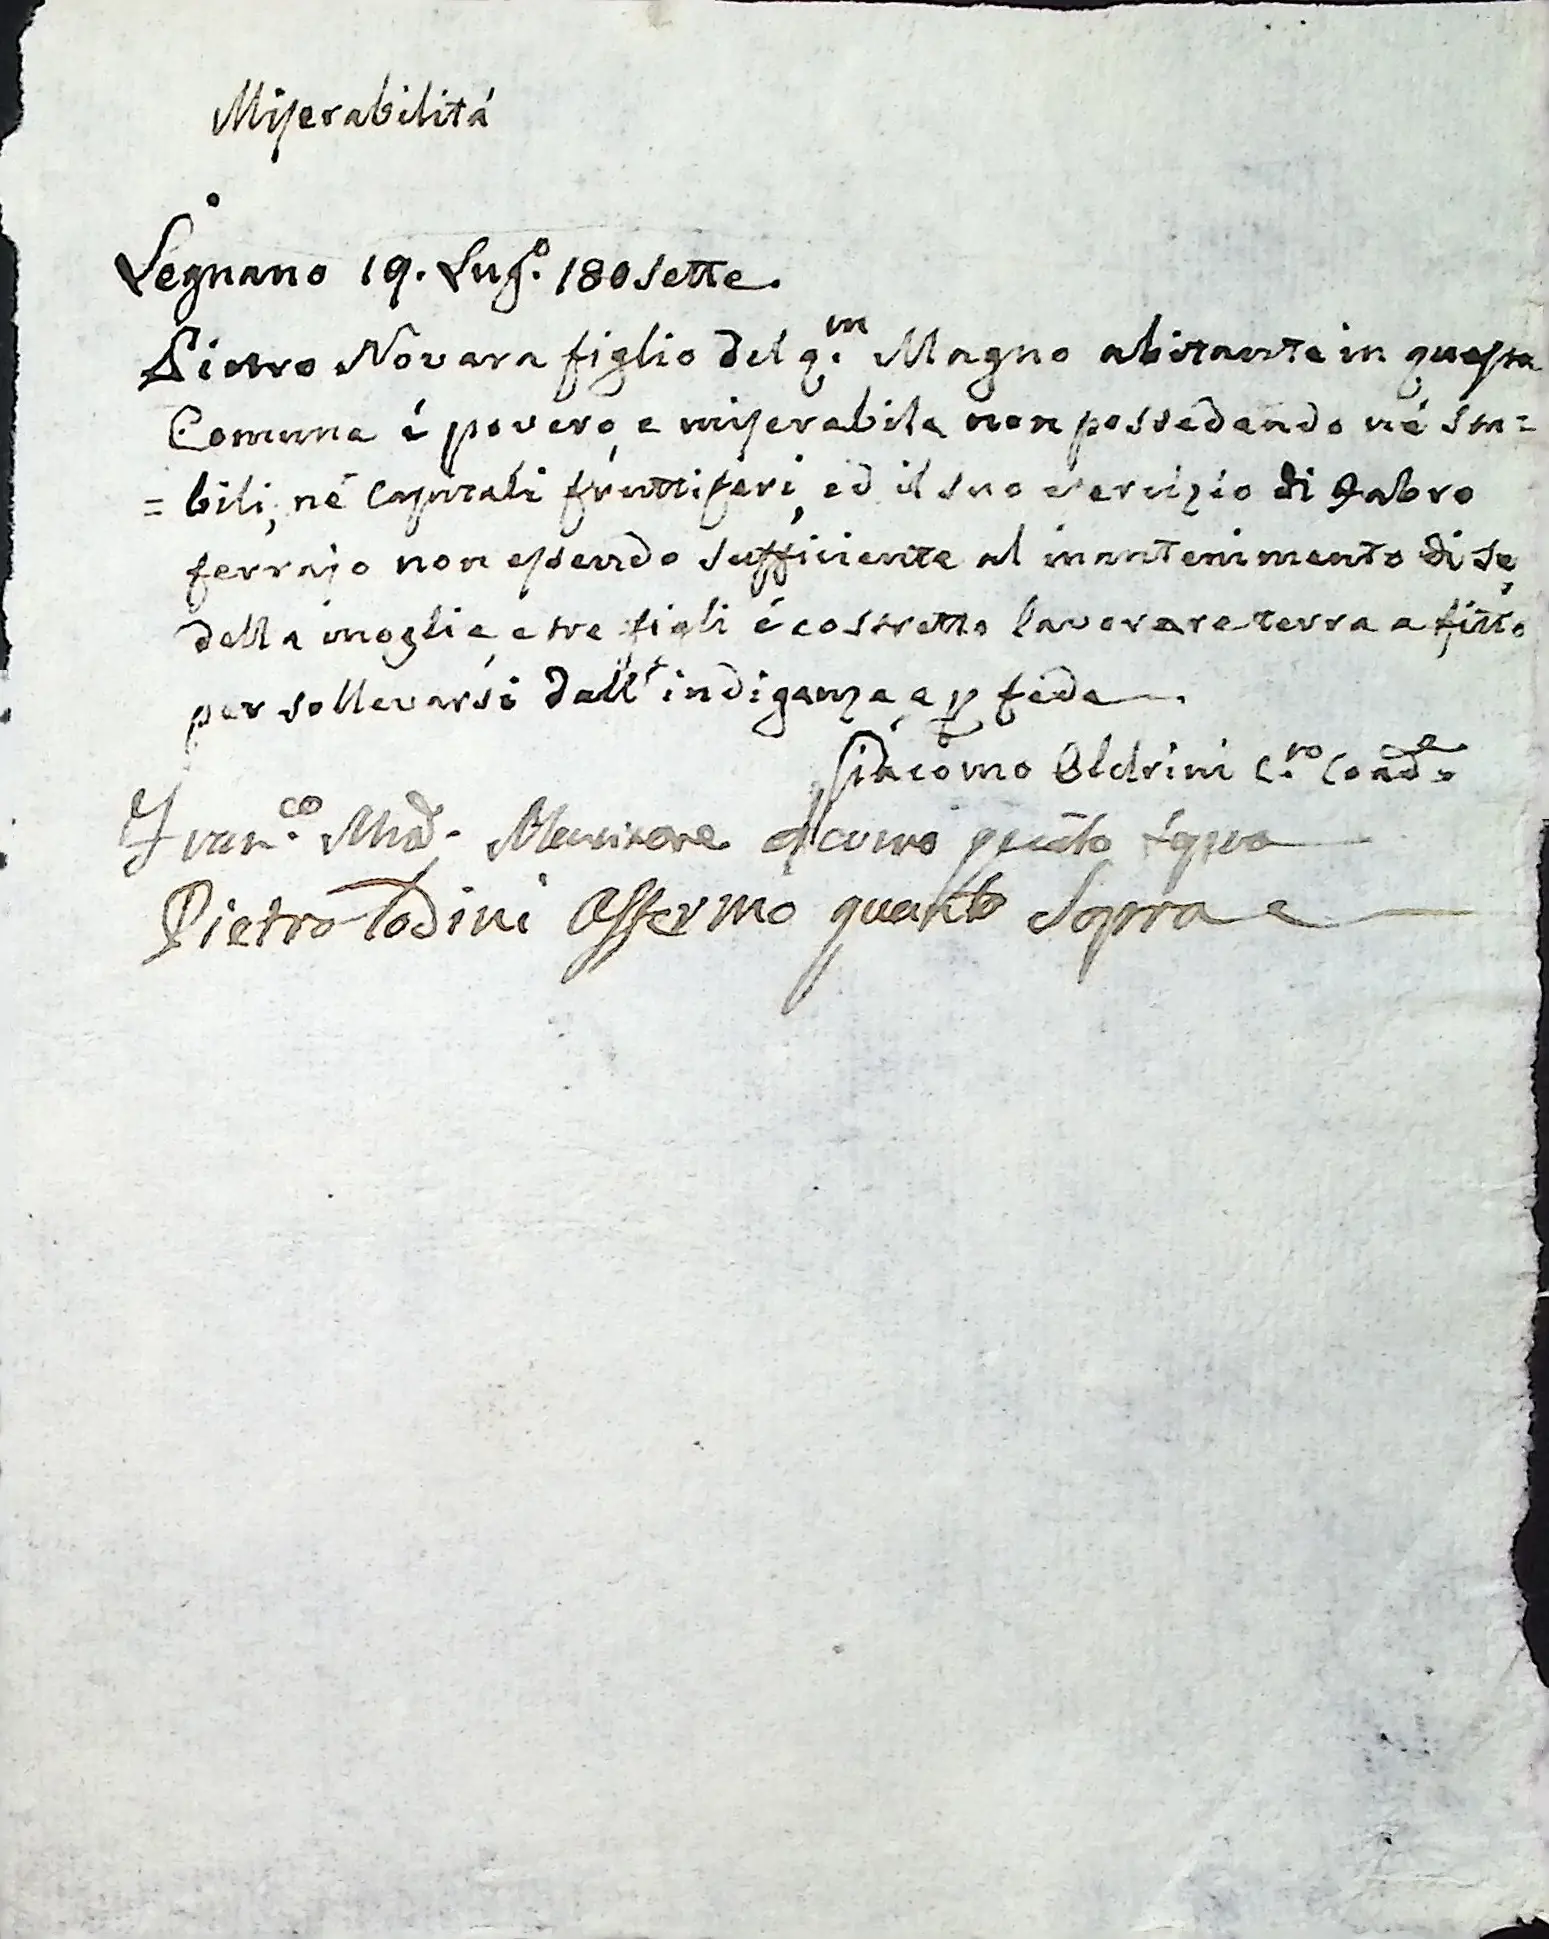 Miserabilitá
Legnano 19. Lug.o 180sette.
Pietro Novara figlio del q.m Magno abitante in questa
Comune é povero, e miserabile non possedendo né sta=
= bili, né capitali fruttiferi, ed il suo esercizio di Fabro
ferrajo non essendo sufficiente al mantenimento di se,
della moglie, e tre figli é costretto lavorare terra a fitto
per sollevarsi dall' indigenza, e p fede
Giacomo Oldrini C.ro Coad.e
Fran.co Affermo quanto sopra
Pietro Todini Affermo quanto Sopra e